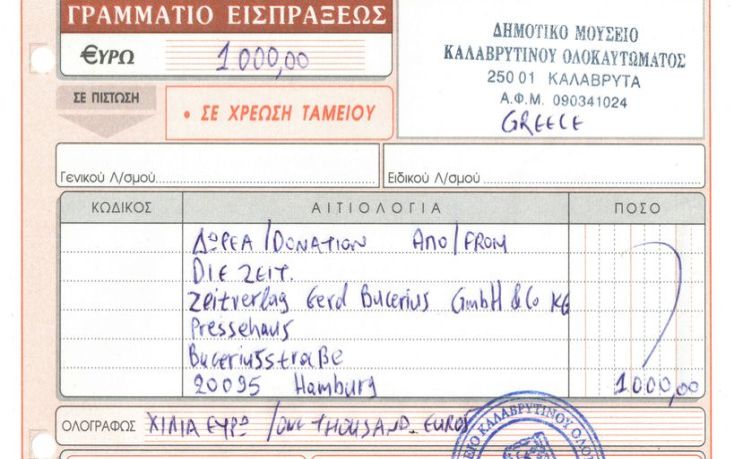 ΓΡΑΜΜΑΤΙΟ ΕΙΣΠΡΑΞΕΩΣ
€ΥΡΩ 1000,00
ΣΕ ΠΙΣΤΩΣΗ
• ΣΕ ΧΡΕΩΣΗ ΤΑΜΕΙΟΥ
ΔΗΜΟΤΙΚΟ ΜΟΥΣΕΙΟ
ΚΑΛΑΒΡΥΤΙΝΟΥ ΟΛΟΚΑΥΤΩΜΑΤΟΣ
250 01 ΚΑΛΑΒΡΥΤΑ
Α.Φ.Μ. 090341024
GREECE
Γενικού Λ/σμού
Ειδικού Λ/σμού
ΚΩΔΙΚΟΣ ΑΙΤΙΟΛΟΓΙΑ ΠΟΣΟ
ΔΩΡΕΑ/DONATION ΑΠΟ/FROM
DIE ZEIT.
Zeitverlag Gerd Bucerius GmbH & Co KG
Pressehaus
Buceriusstraße
20095 Hamburg 1000,00
ΟΛΟΓΡΑΦΩΣ ΧΙΛΙΑ ΕΥΡΩ /ONE THOUSAND EUROS
ΚΑΛΑΒΡΥΤΙΝΟΥ